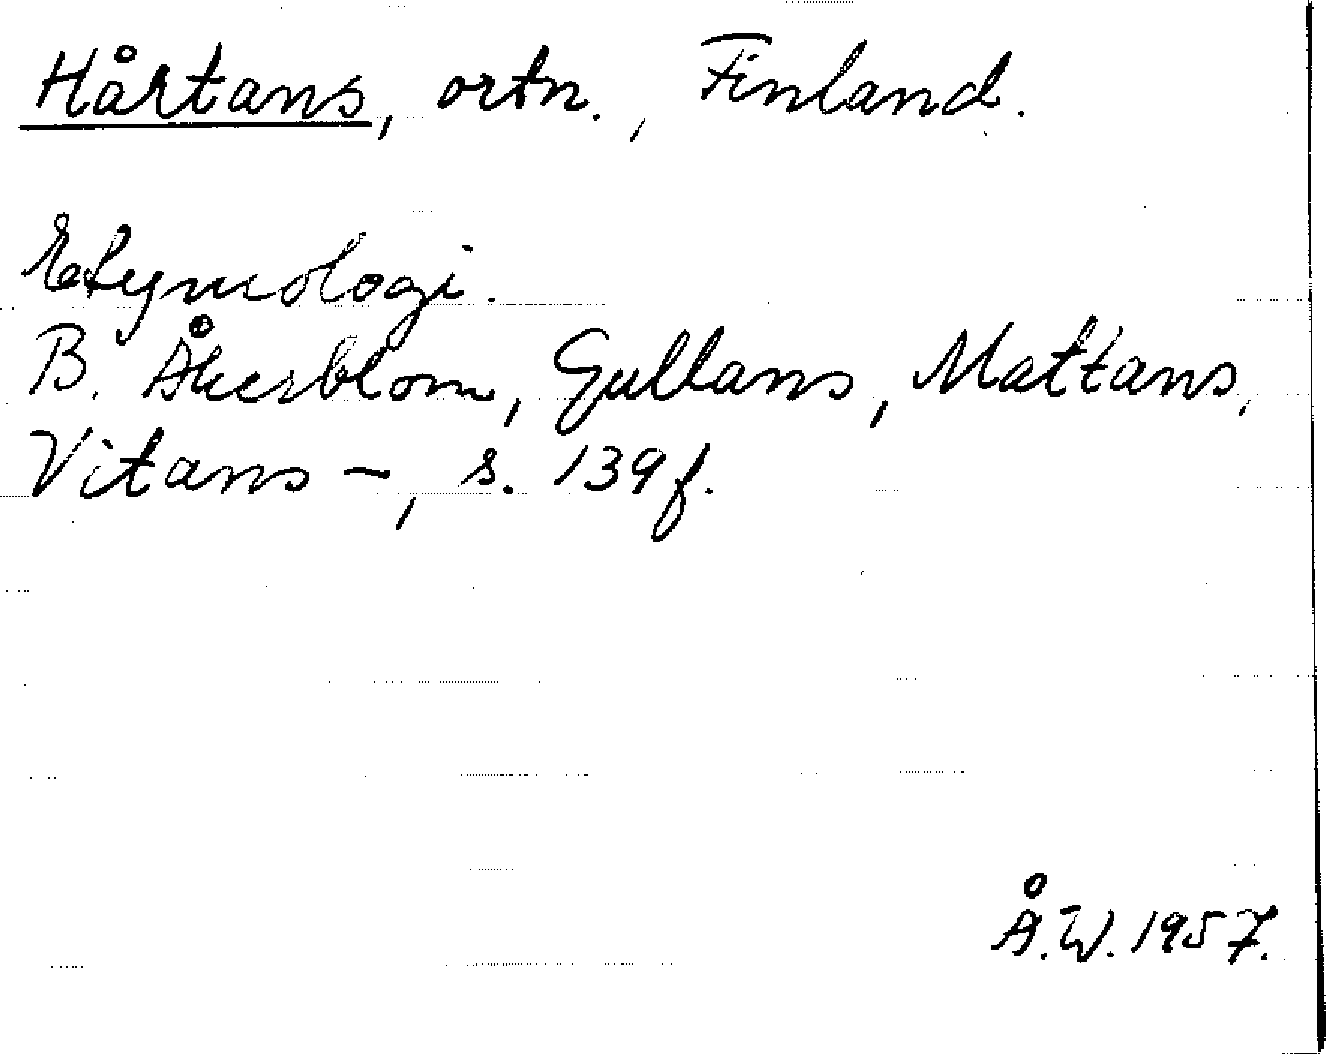 Hårtans, ortn., Finland.
Etymologi.
B. Åkerblom, Gullans, Mattans,
Vitans –, s. 139 f.
Å.W. 1957.